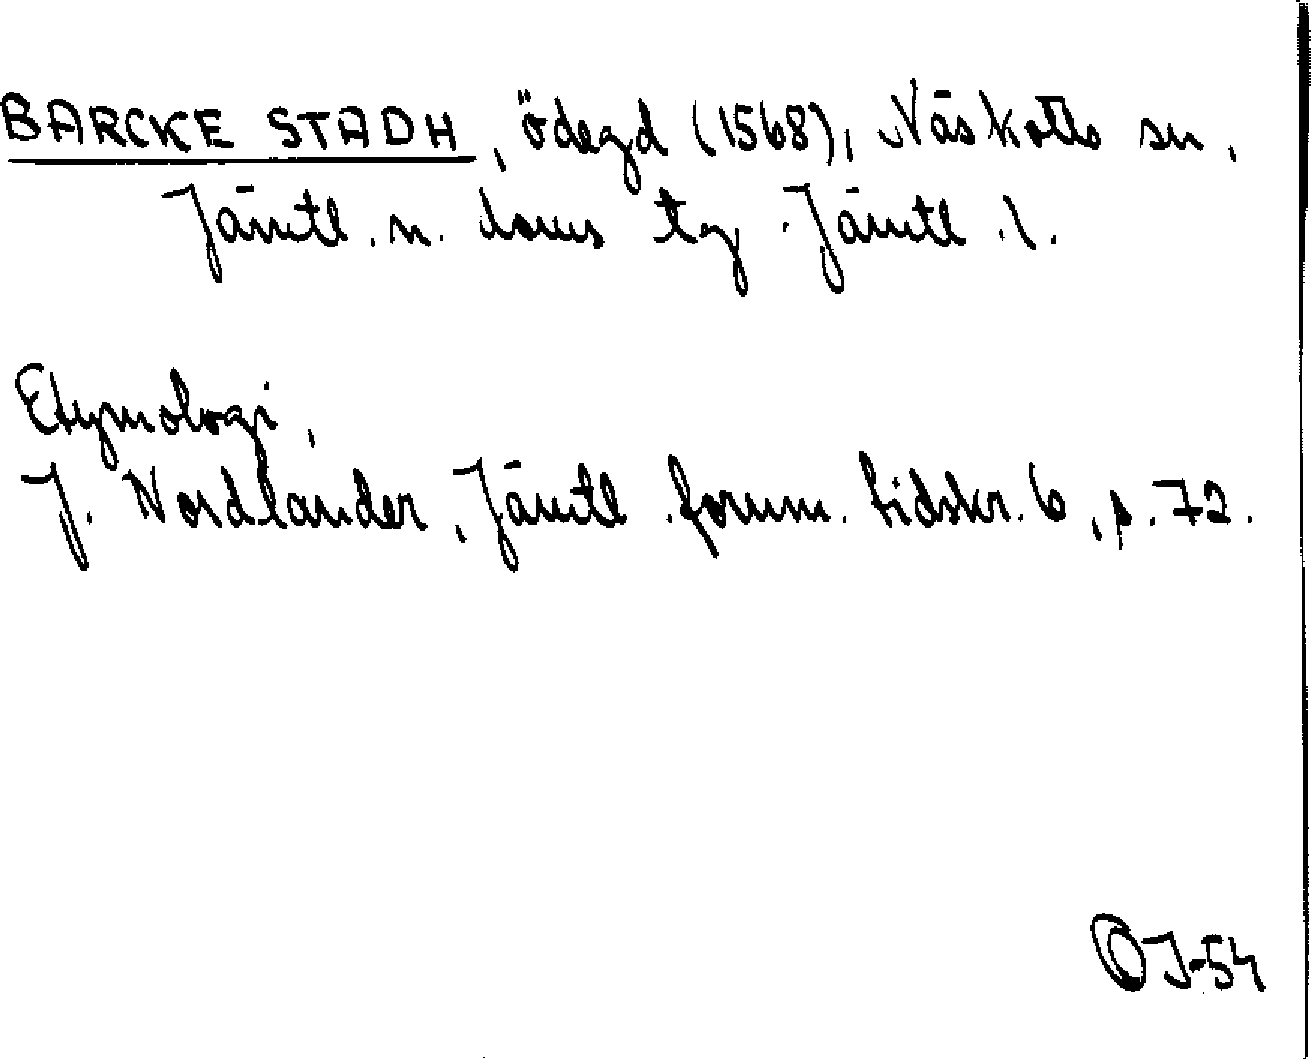 BARCKE STADH, ödegd (1568), Näskotts sn,
Jämtl. n. doms tg. Jämtl. l.
Etymologi,
J. Nordlander, Jämtl. fornm. tidskr. 6, p. 72.
OJ-54